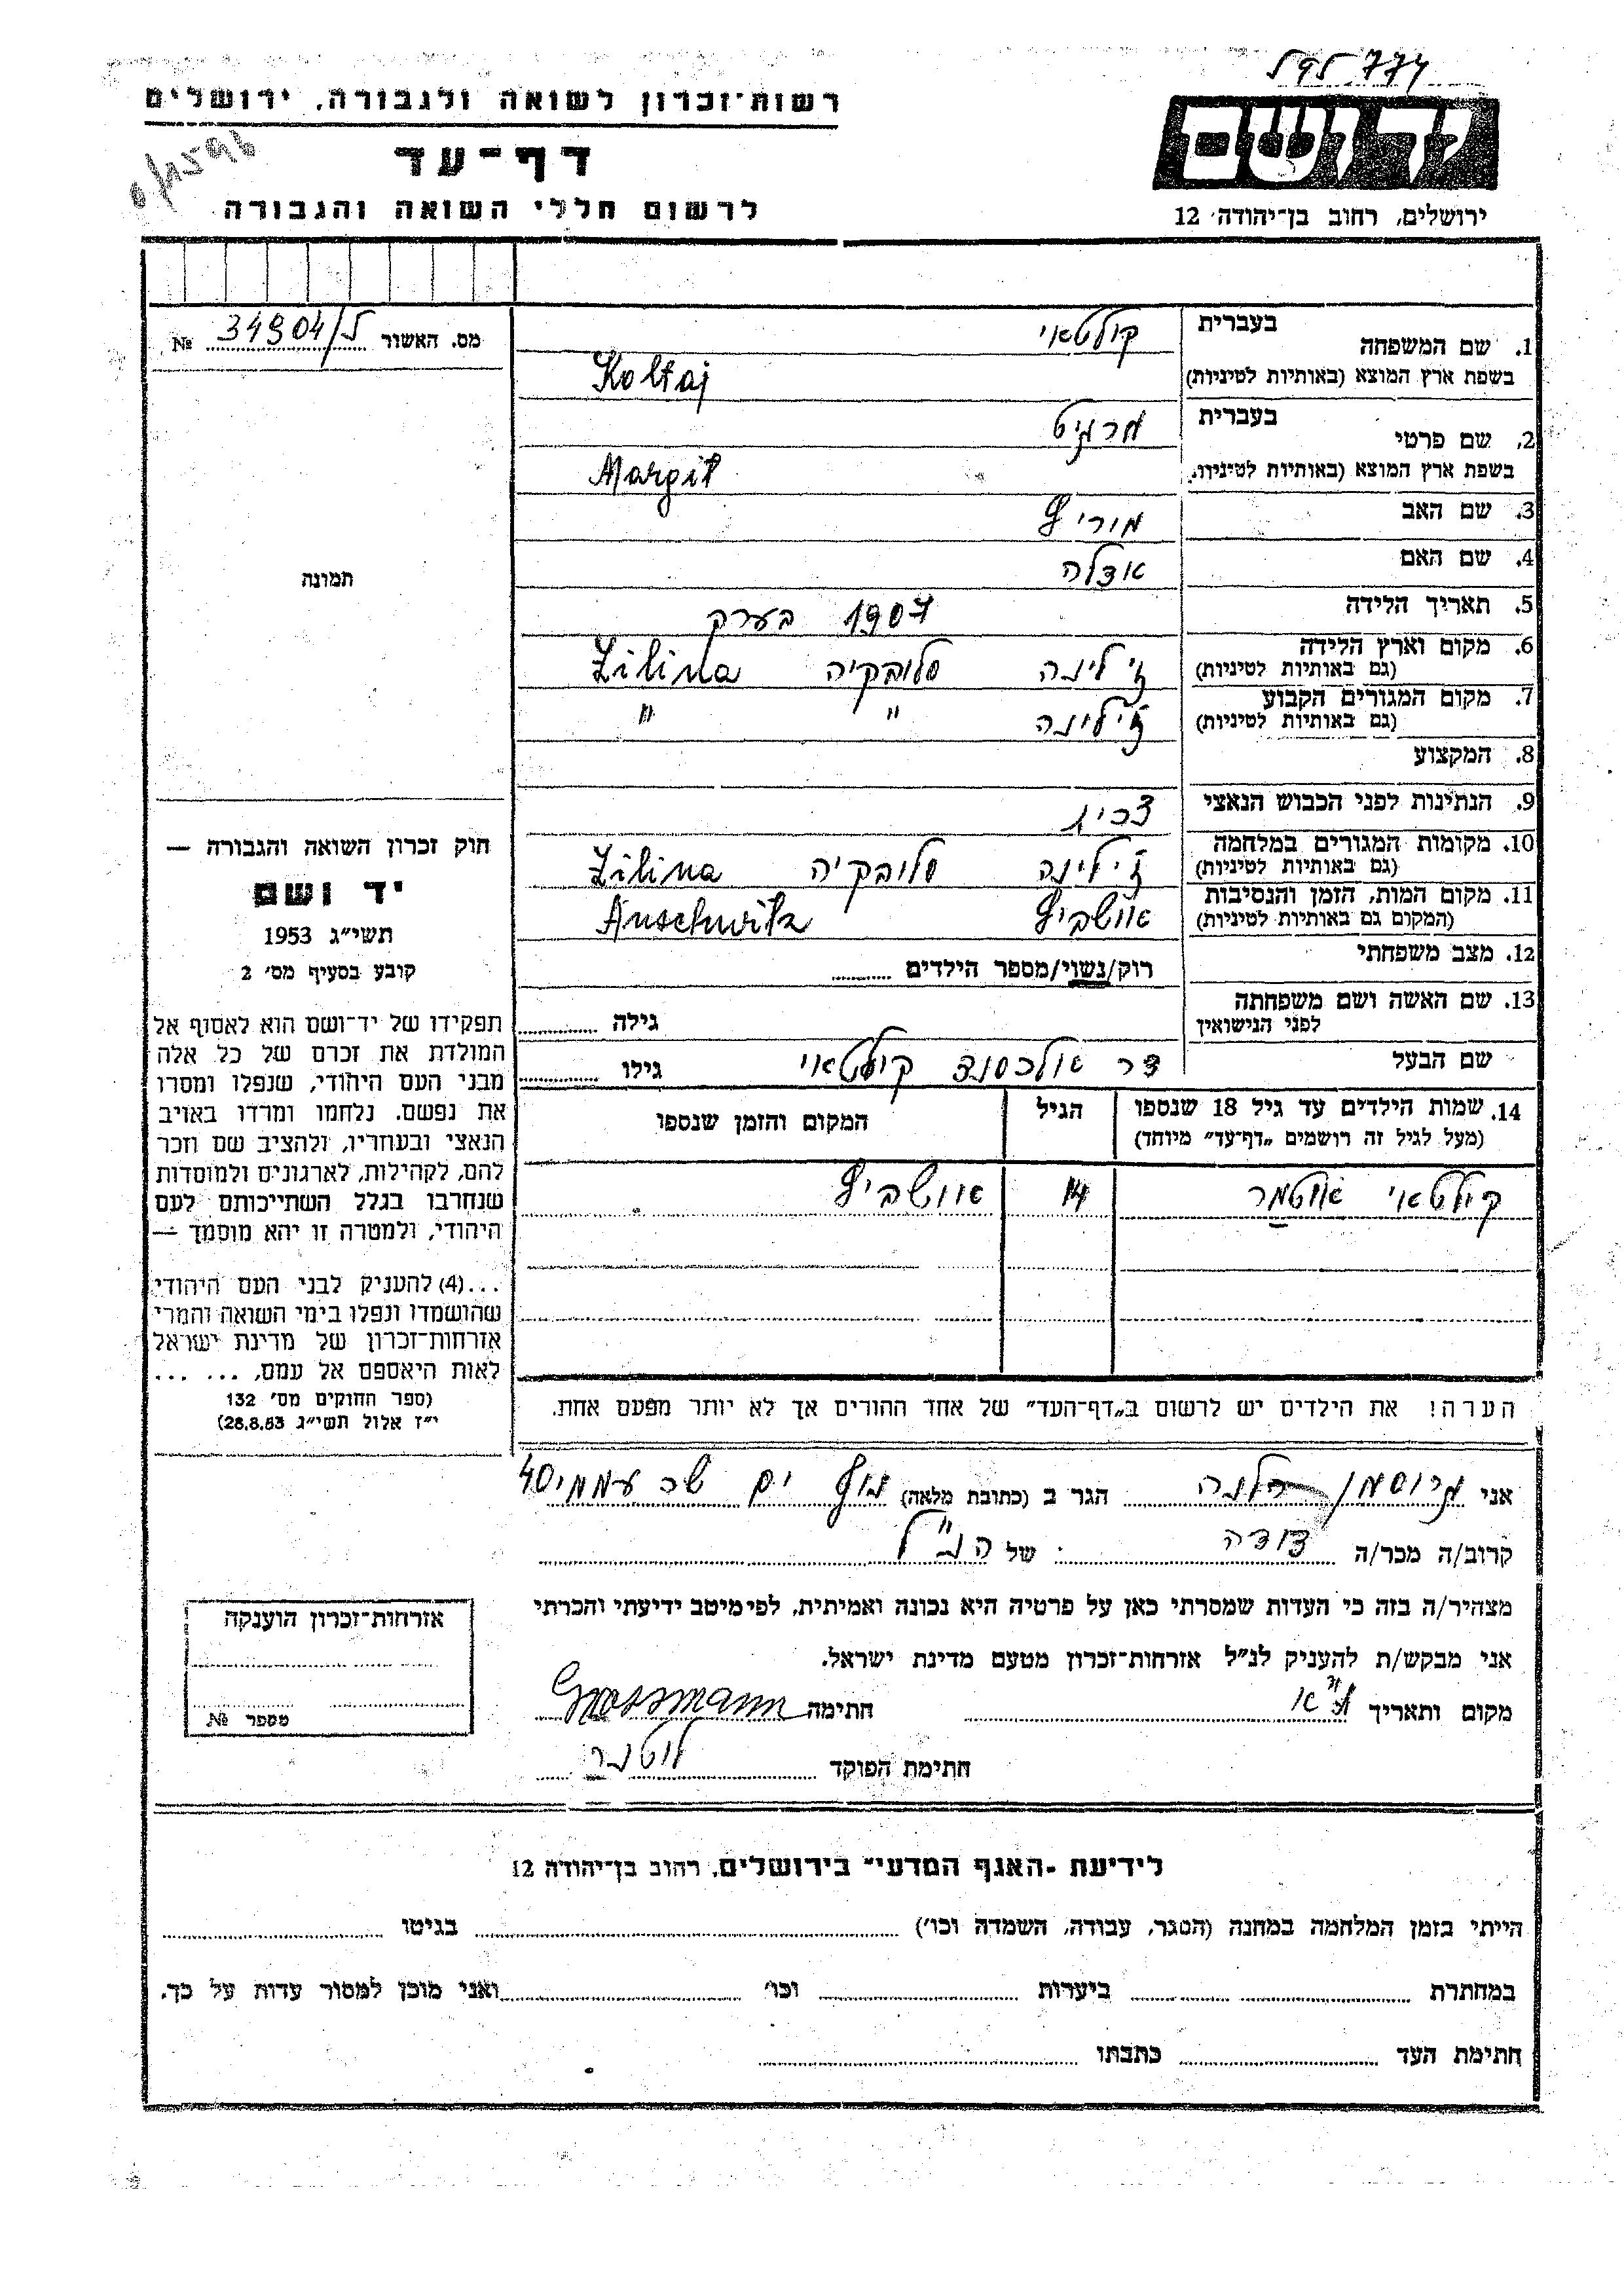 595774
רשות־זכרון לשואה ולגבורה, ירושלים
דף־עד
לרשום חללי השואה והגבורה
ידושם
ירושלים, רחוב בן־יהודה 12
מס. האשור 34904/ל №
תמונה
חוק זכרון השואה והגבורה —
יד ושם
תשי״ג 1953
קובע בסעיף מס׳ 2
תפקידו של יד־ושם הוא לאסוף אל
המולדת את זכרם של כל אלה
מבני העם היהודי, שנפלו ומסרו
את נפשם, נלחמו ומרדו באויב
הנאצי ובעוזריו, ולהציב שם וזכר
להם, לקהילות, לארגונים ולמוסדות
שנחרבו בגלל השתייכותם לעם
היהודי, ולמטרה זו יהא מוסמך —
...(4) להעניק לבני העם היהודי
שהושמדו ונפלו בימי השואה והמרי
אזרחות־זכרון של מדינת ישראל
לאות היאספם אל עמם, ... ...
(ספר החוקים מס׳ 132
י״ז אלול תשי״ג 28.8.53)
1. שם המשפחה בעברית קולטאי
בשפת ארץ המוצא (באותיות לטיניות) Koltaj
2. שם פרטי בעברית מרגיט
בשפת ארץ המוצא (באותיות לטיניות) Margit
3. שם האב מוריץ
4. שם האם אדלה
5. תאריך הלידה 1907 בערק
6. מקום וארץ הלידה (גם באותיות לטיניות) ז׳ילינה סלובקיה Žilina
7. מקום המגורים הקבוע (גם באותיות לטיניות) ז׳ילינה " "
8. המקצוע
9. הנתינות לפני הכבוש הנאצי צכית
10. מקומות המגורים במלחמה (גם באותיות לטיניות) ז׳ילינה סלובקיה Žilina
11. מקום המות, הזמן והנסיבות (המקום גם באותיות לטיניות) אוושביץ Auschwitz
12. מצב משפחתי רווק/נשוי/מספר הילדים
13. שם האשה ושם משפחתה לפני הנישואין גילה
שם הבעל דר אולכסנד קולטאי גילו
14. שמות הילדים עד גיל 18 שנספו הגיל המקום והזמן שנספו
(מעל לגיל זה רושמים „דף־עד״ מיוחד)
קולטאי אוטמר 14 אוושביץ
הערה! את הילדים יש לרשום ב„דף־העד״ של אחד ההורים אך לא יותר מפעם אחת.
אני גרוסמן הלנה הגר ב (כתובת מלאה) נוף ים שכ עממי 40
קרוב/ה מכר/ה דודה של הנ״ל
מצהיר/ה בזה כי העדות שמסרתי כאן על פרטיה היא נכונה ואמיתית, לפי מיטב ידיעתי והכרתי
אני מבקש/ת להעניק לנ״ל אזרחות־זכרון מטעם מדינת ישראל.
מקום ותאריך ת״א חתימה Grossmann
חתימת הפוקד
אזרחות־זכרון הוענקה
מספר №
לידיעת „האגף המדעי״ בירושלים, רחוב בן־יהודה 12
הייתי בזמן המלחמה במחנה (הסגר, עבודה, השמדה וכו׳) בגיטו
במחתרת ביערות וכו׳ ואני מוכן למסור עדות על כך.
חתימת העד כתבתו